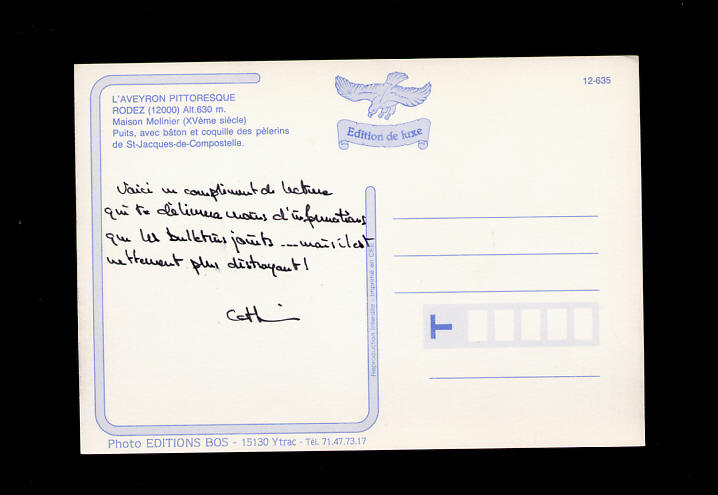 L'AVEYRON PITTORESQUE
RODEZ (12000) Alt.630 m.
Maison Molinier (XVème siècle)
Puits, avec bâton et coquille des pèlerins
de St-Jacques-de-Compostelle.
Edition de luxe
12-635
Voici un complément de lecture
qui te délivrera moins d'informations
que les bulletins joints ... mais il est
nettement plus distrayant !
Cath
Reproduction interdite - Imprimé en
T
Photo EDITIONS BOS - 15130 Ytrac - Tél. 71.47.73.17